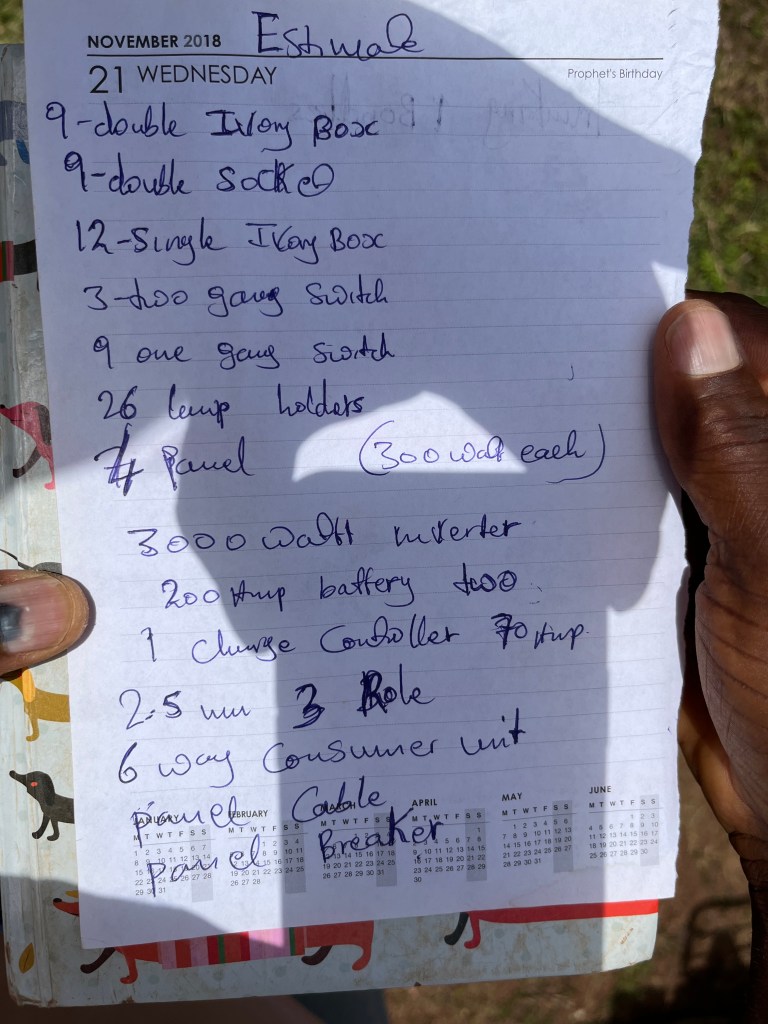 NOVEMBER 2018 Estimate
21 WEDNESDAY
Prophet's Birthday
9-double Ivory Box
9-double Socket
12-Single Ivory Box
3-two gang Switch
9 one gang switch
26 lamp holders
4 Panel (300 watt each)
3000 watt inverter
200 Amp battery two
1 Charge Controller 70 Amp.
2.5 mm 3 Role
6 way Consumer unit
Panel Cable
Panel Breaker
JANUARY FEBRUARY MARCH APRIL MAY JUNE